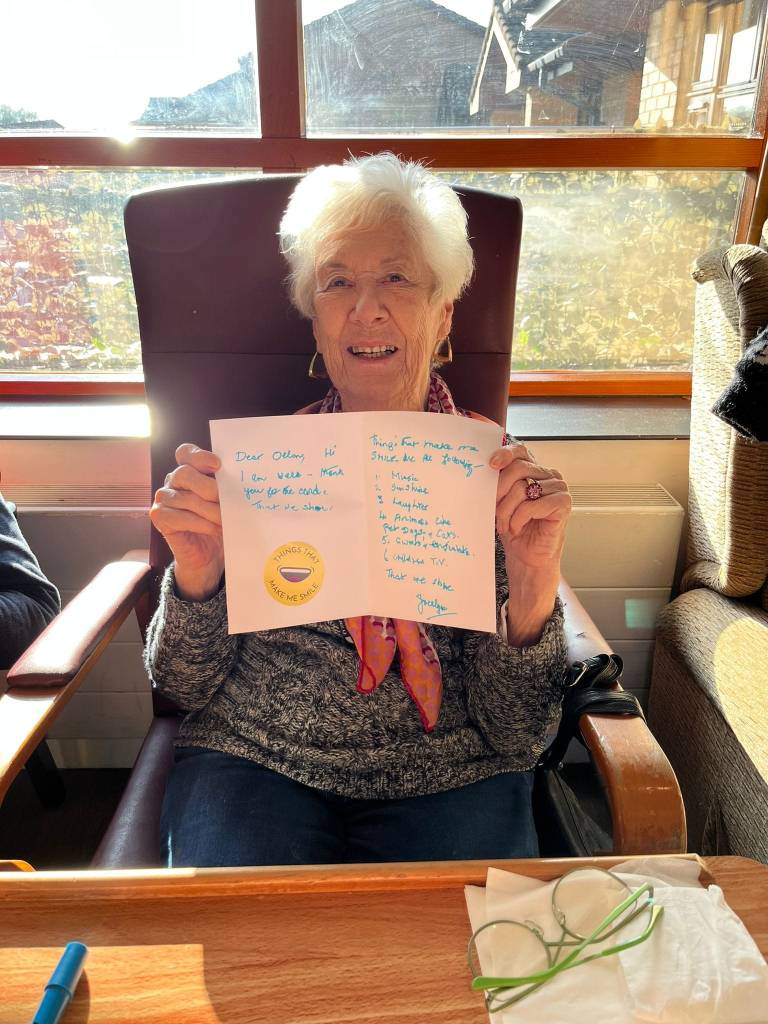 Dear Hi
I am well - thank
you for the card.
That me
THINGS THAT
MAKE ME SMILE
Things that make me
Smile are the following
1 Music
2 Sunshine
3 Laughter
4 Animals like
Pet Dogs, + Cats.
5.
6 Children T.V.
That me
Jocelyn